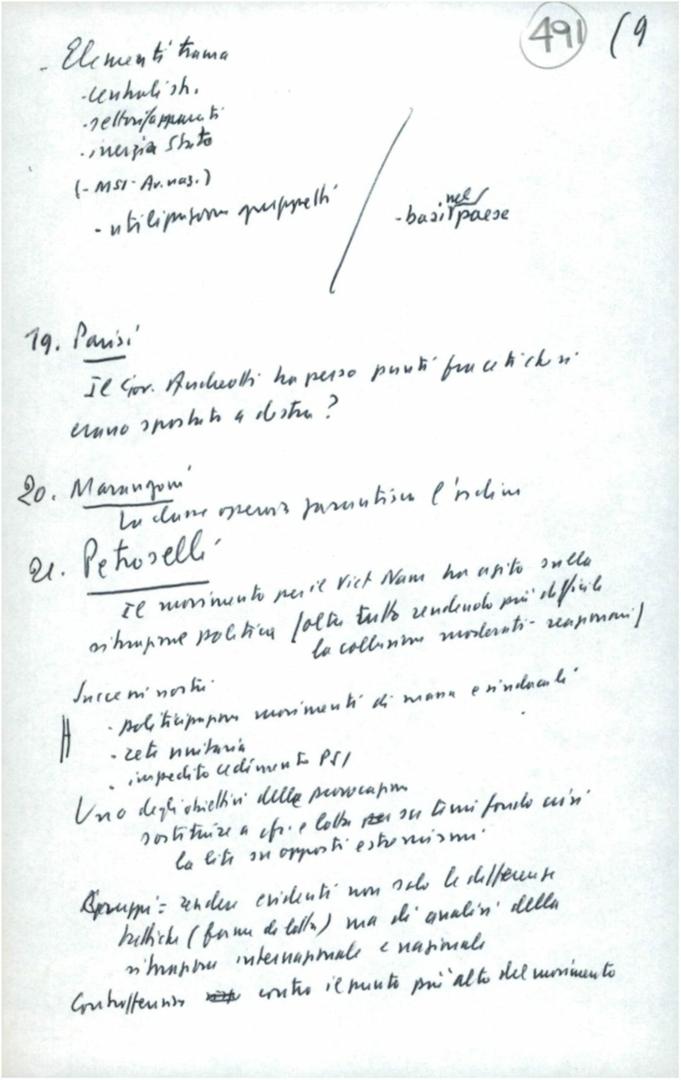 491 (9
- Elementi trama
- centralist.
- settori/apparati
- inerzia Stato
(- MSI - Av. naz.)
- utilizzazione gruppetti
nel
- basi paese
19. Parisi
Il Gov. Andreotti ha perso punti fra ceti che si
erano spostati a destra?
20. Marangoni
La classe operaia garantisce l'ordine
21. Petroselli
Il movimento per il Viet Nam ha agito sulla
situazione politica (oltre tutto rendendo più difficile
la collusione moderati - reazionari)
Successi nostri
- politicizzazione movimenti di massa e sindacali
- rete unitaria
- impedito cedimento PSI
Uno degli obiettivi della provocazione
sostituire a lotta su temi fondo crisi
la lite su opposti estremismi
Gruppi = rendere evidenti non solo le differenze
tattiche (forme di lotta) ma di analisi della
situazione internazionale e nazionale
Controffensiva contro il punto più alto del movimento